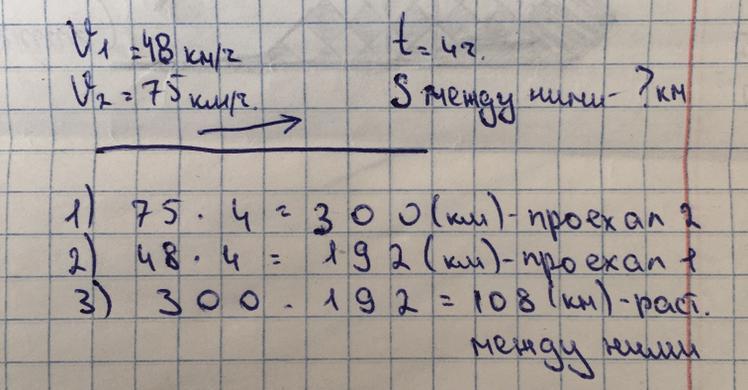 V1 = 48 км/ч t = 4ч.
V2 = 75 км/ч. S между ними - ? км
1) 75 · 4 = 300 (км) - проехал 2
2) 48 · 4 = 192 (км) - проехал 1
3) 300 - 192 = 108 (км) - раст.
между ними